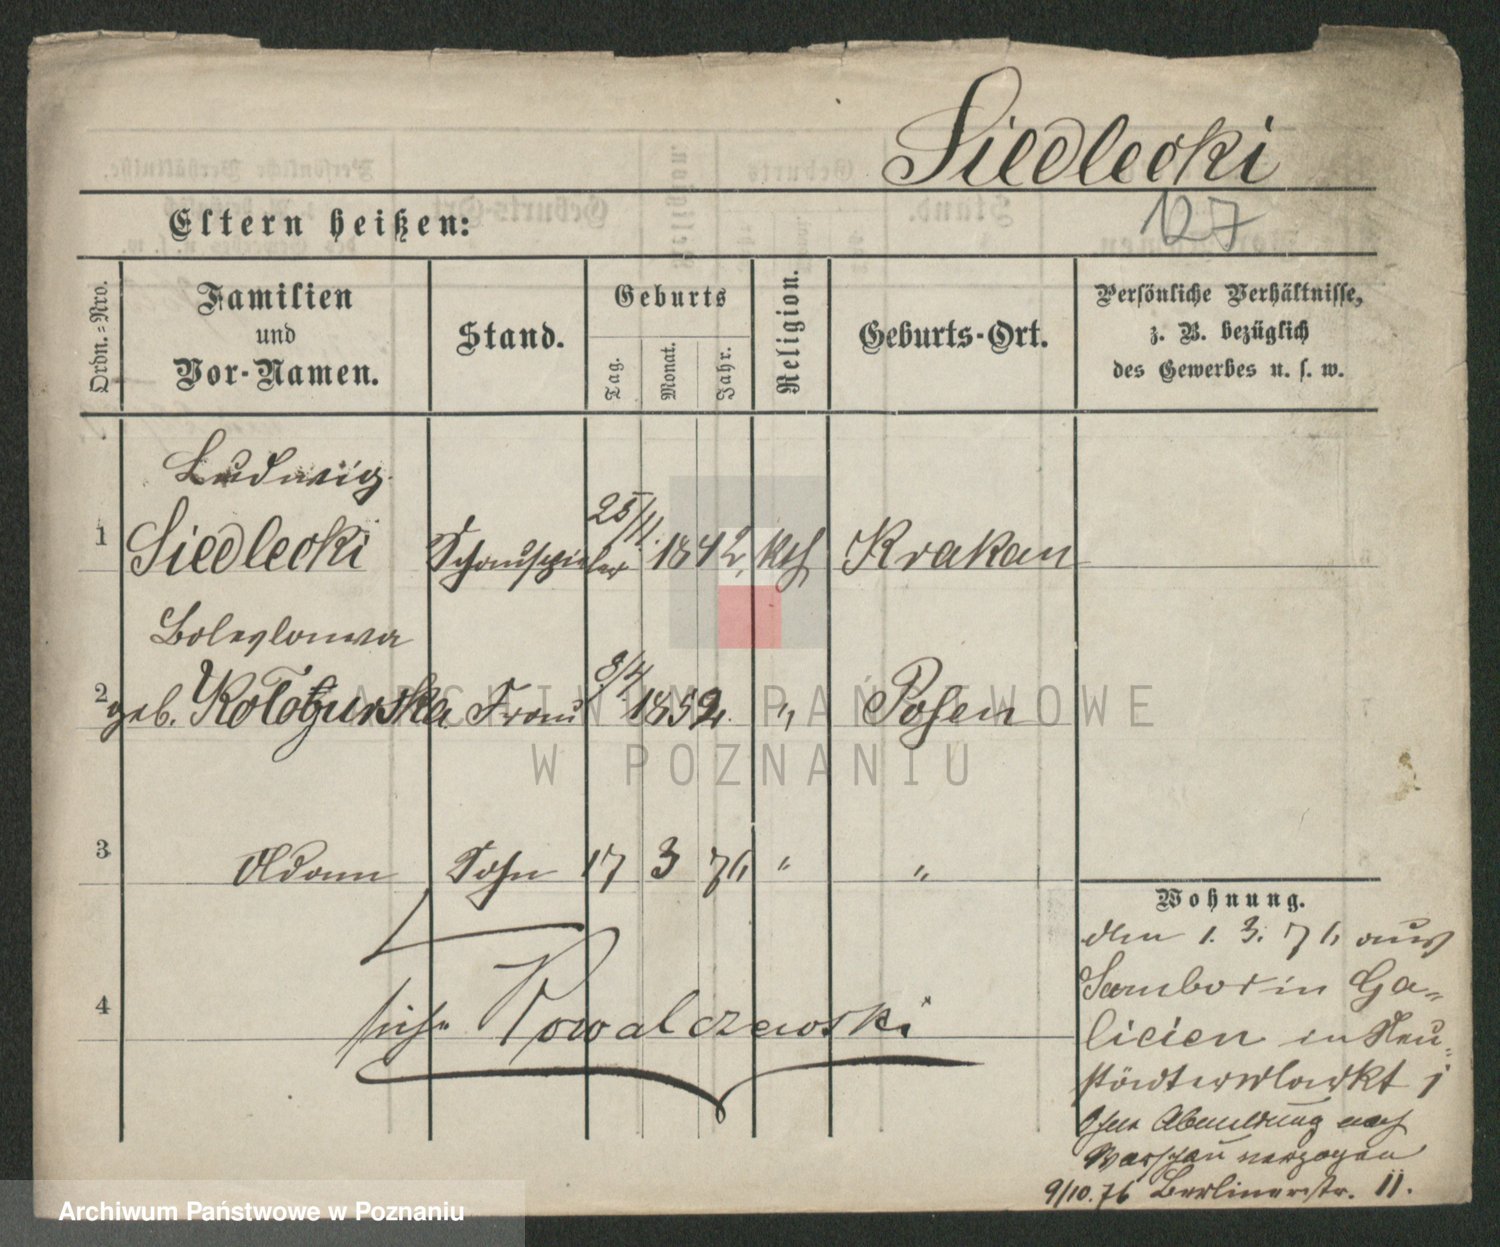 Siedlecki
127
Eltern heißen:
Ordn.=Nro.
Familien
und
Vor-Namen.
Stand.
Geburts
Tag.
Monat.
Jahr.
Religion.
Geburts-Ort.
Persönliche Verhältnisse,
z. B. bezüglich
des Gewerbes u. s. w.
Ludwig
1 Siedlecki Schauspieler 25/11. 1842, kth Krakau
2 geb. Frau 8/4 1852. " Posen
3 Adam Sohn 17 3 76 " "
4 siehe Kowalczewski
Wohnung.
den 1. 3. 76 aus
Sambor in Ga-
licien in Neu-
städtermarkt
Ohne Abmeldung nach
Warschau verzogen
9/10. 76 Berlinerstr. 11.
ARCHIWUM PAŃSTWOWE
W POZNANIU
Archiwum Państwowe w Poznaniu